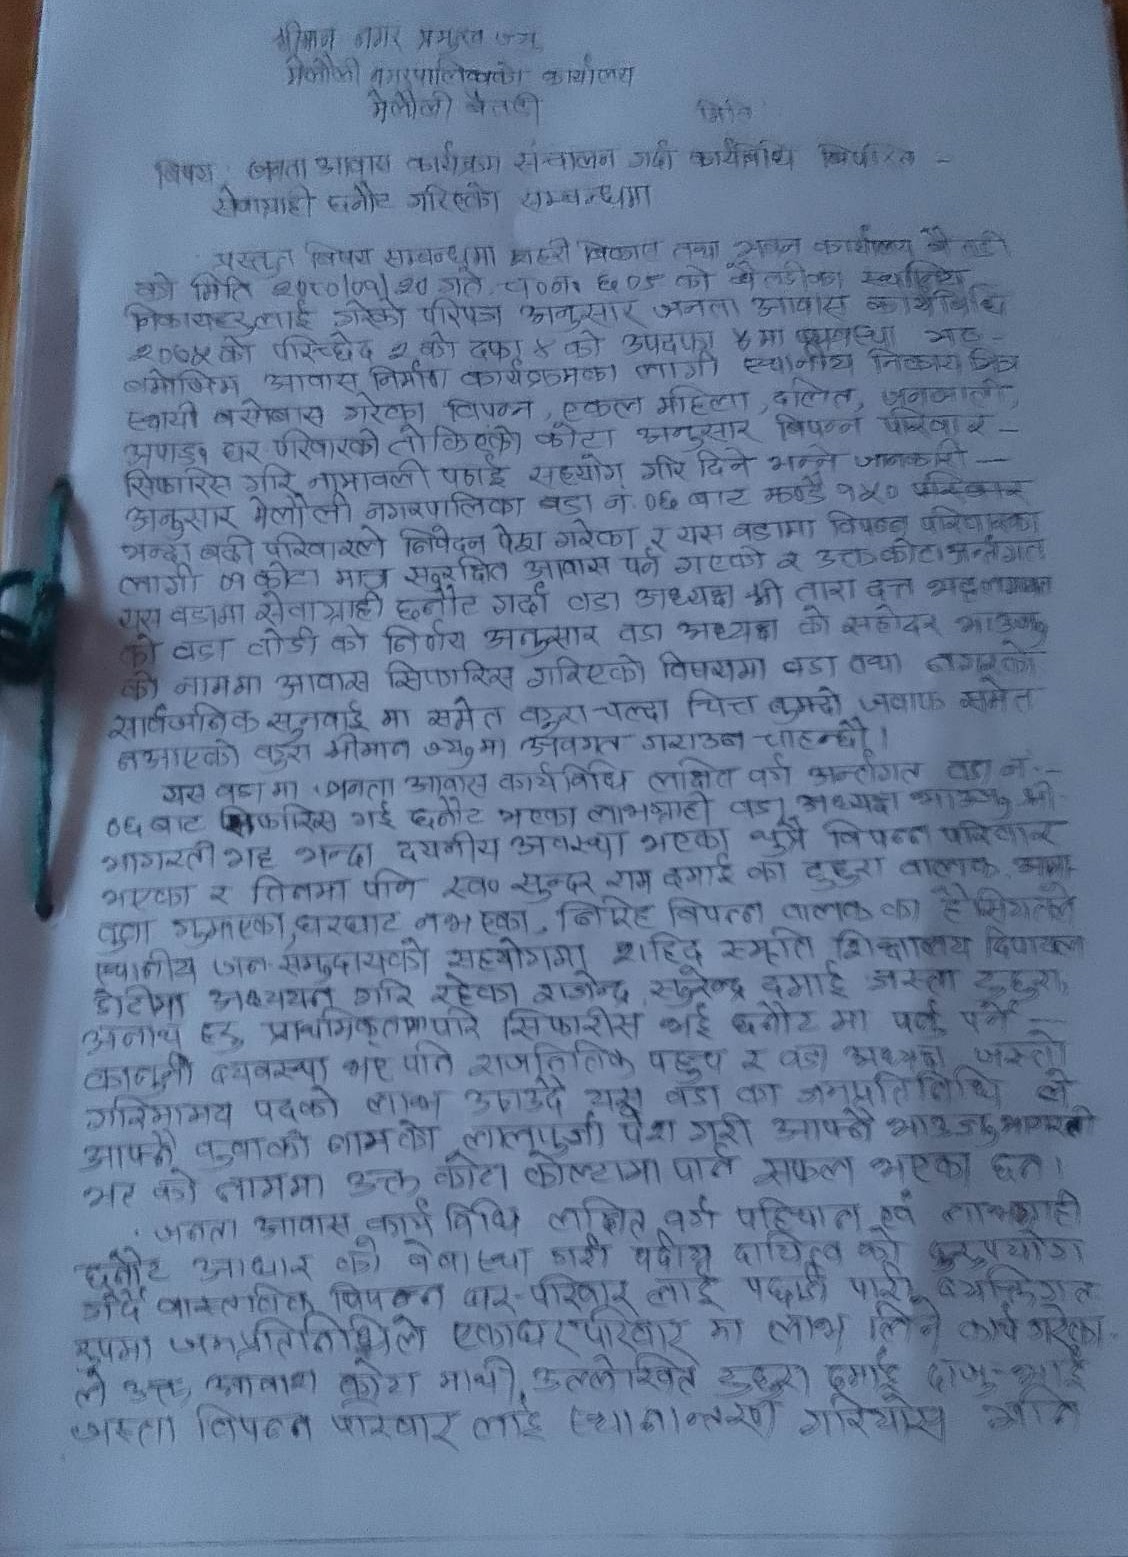 श्रीमान नगर प्रमुख ज्यू
मेलौली नगरपालिकाको कार्यालय
मेलौली बैतडी मिति
विषय: जनता आवास कार्यक्रम संचालन गर्दा कार्यविधि विपरित -
सेवाग्राही छनौट गरिएको सम्बन्धमा
प्रस्तुत विषय सम्बन्धमा शहरी विकास तथा भवन कार्यालय बैतडी
को मिति गते, च०न० ६०५ को बैतडीका स्थानिय
निकायहरुलाई गरेको परिपत्र अनुसार जनता आवास कार्यविधि
२०७५ को परिच्छेद २ को दफा ४ को उपदफा ४ मा व्यवस्था भए-
बमोजिम आवास निर्माण कार्यक्रमका लागी स्थानीय निकाय भित्र
स्थायी बसोबास गरेका विपन्न, एकल महिला, दलित, जनजाती,
अपाङ्ग घर परिवारको तोकिएको कोटा अनुसार विपन्न परिवार -
सिफारिस गरि नामावली पठाई सहयोग गरि दिने भन्ने जानकारी -
अनुसार मेलौली नगरपालिका वडा नं. ०६ बाट १५० परिवार
भन्दा बढी परिवारले निवेदन पेश गरेका र यस वडामा विपन्न परिवारका
लागी कोटा मात्र सुरक्षित आवास पर्न गएको र उक्त कोटा अर्न्तगत
यस वडामा सेवाग्राही छनौट गर्दा वडा अध्यक्ष श्री तारा दत्त भट्ट
को वडा बोर्ड को निर्णय अनुसार वडा अध्यक्ष को सहोदर भाउजु
को नाममा आवास सिफारिस गरिएको विषयमा वडा तथा नगरको
सार्वजनिक सुनुवाई मा समेत कुरा चल्दा चित्त बुझ्दो जवाफ समेत
नआएको कुरा श्रीमान ज्यु मा अवगत गराउन चाहन्छौ।
यस वडा मा जनता आवास कार्यविधि लक्षित वर्ग अर्न्तगत वडा नं. -
०६ बाट सिफारिस गई छनौट भएका लाभग्राही वडा अध्यक्ष भाउजु श्री
भागरती भट्ट भन्दा दयनीय अवस्था भएका थुप्रै विपन्न परिवार
भएका र तिनमा पनि स्व० सुन्दर राम दमाई का टुहुरा बालक, आमा
बुवा गुमाएका, घरघाट नभएका, निरिह विपन्न बालक का हैसियतले
स्थानीय जन समुदायको सहयोगमा शहिद स्मृति शिक्षालय दिपायल
डोटीमा अध्ययन गरि रहेका राजेन्द्र, सुरेन्द्र दमाई जस्ता टुहुरा,
अनाथ हरु प्राथमिकतामा परि सिफारीस भई छनौट मा पर्नु पर्ने -
कानुनी व्यवस्था भए पनि राजनितिक पहुच र वडा अध्यक्ष जस्तो
गरिमामय पदको लाभ उठाउदै यस वडा का जनप्रतिनिधि ले
आफ्नै बुवाको नामको लालपुर्जा पेश गरी आफ्नै भाउजु भागरती
भट्ट को नाममा उक्त कोटा कोल्टामा पार्न सफल भएका छन।
जनता आवास कार्य विधि लक्षित वर्ग पहिचान एवं लाभग्राही
छनौट आधार को वेवास्था गरी पदीय दायित्व को दुरुपयोग
गर्दै वास्तविक विपन्न घर-परिवार लाई पछाडी पारी, ब्यक्तिगत
रुपमा जनप्रतिनिधिले एकाघर परिवार मा लाभ लिने कार्य गरेका
ले उक्त आवास कोटा माथी उल्लेखित टुहुरा दमाई दाजु-भाई
जस्ता विपन्न परिवार लाई स्थानान्तरण गरियोस भनि